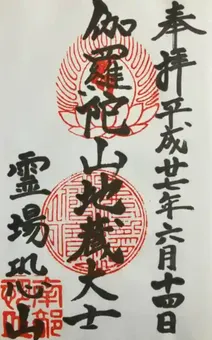 奉拝平成廿七年六月十四日
伽羅陀山地蔵大士
霊場恐山
南部